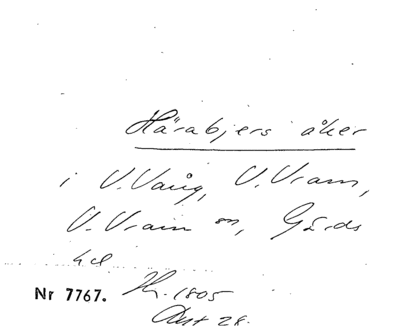 Härabjers åker
i V.Vång, V.Vram,
V.Vram sn, Gärds
hd
Nr 7767. Hs. 1805
Akt 28.